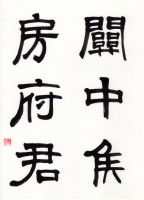 關中侯
房府君